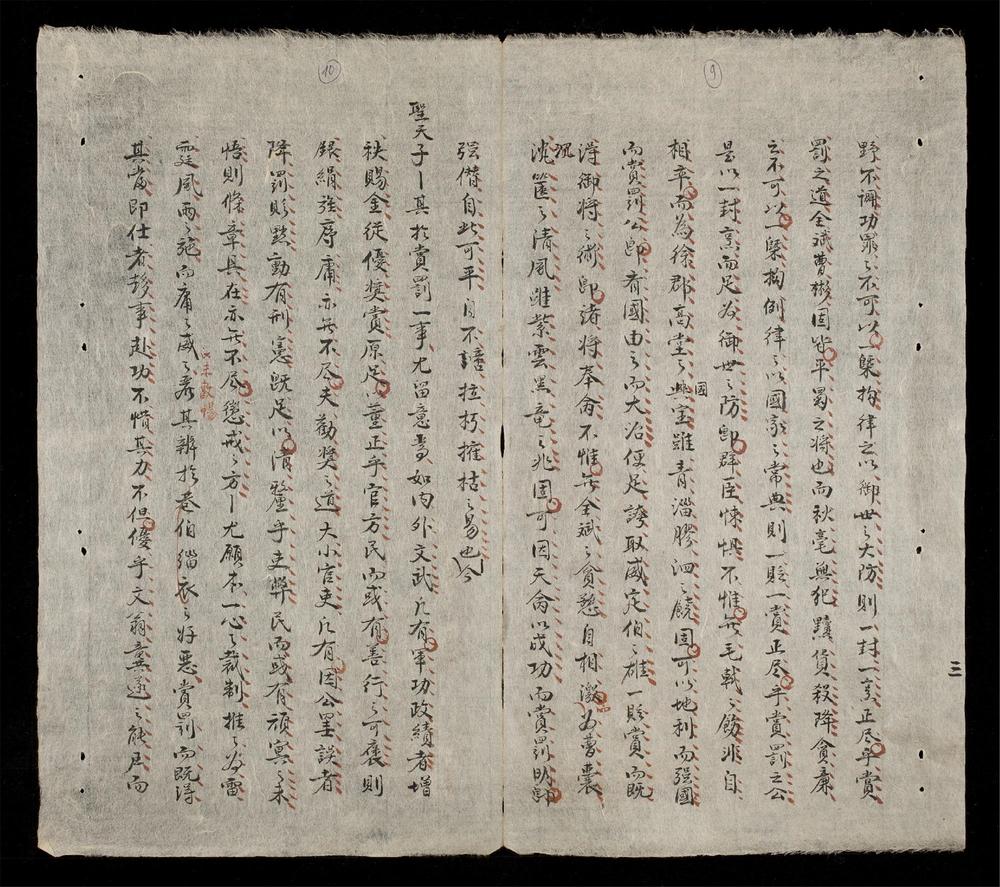 9
野不調功罪之不可以一槩拘律之以御世之大防則一封一烹正尽乎賞
罰之道全斌曹彬固皆平蜀之將也而秋毫無犯黷貨殺降貪廉
之不可以一槩拘例律之以國家之常典則一貶一賞正尽乎賞罰之公
是以一封烹而足为御世之防即群臣悚惧不惟無毛戟之餙非自
相率而為徐郡高堂之興國室雖青淄膠泗之饒固可以地利而强國
而賞罰公即齐國由之而大治便足誇取威定伯之雄一貶賞而既
淂御將之術即诸將奉命不惟無全斌之貪愁自相激为囊橐
沈匱之清風雖紫雲黑竜之兆固可因天命以成功而賞罰明即
况
强僣自此可平自不讓拉朽摧枯之易也今
三
10
聖天子其於賞罰一事尤留意焉如内外文武凡有軍功政績者增
秩賜金從優奬賞原足以董正乎官方民而或有善行之可褒則
銀絹旌序庸亦無不尽夫勸奬之道大小官吏凡有因公罣誤者
降罰貶黜動有刑憲既足以清釐乎吏弊民而或有頑冥之未
悟則條章具在亦無不尽懲戒之方尤願本一心之裁制推之为雷
霆風雨之施而庸之威之者其辨於巷伯緇衣之好惡賞罰而既淂
未敢暢
其當即仕者趍事赴功不惜其力不但優乎文翁龔遂之能居而